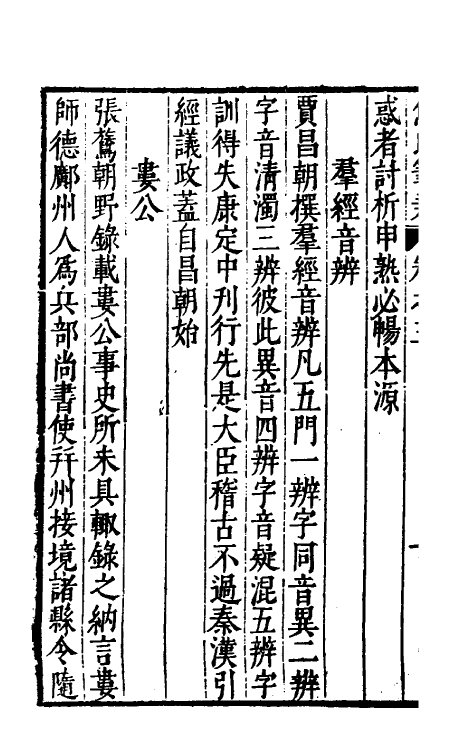 惑者討析申熟必暢本源
羣經音辨
賈昌朝撰羣經音辨凡五門一辨字同音異二辨
字音清濁三辨彼此異音四辨字音疑混五辨字
訓得失康定中刊行先是大臣稽古不過秦漢引
經議政蓋自昌朝始
婁公
張鷟朝野錄載婁公事史所未具輙錄之納言婁
師德鄺州人爲兵部尚書使幷州接境諸縣令隨